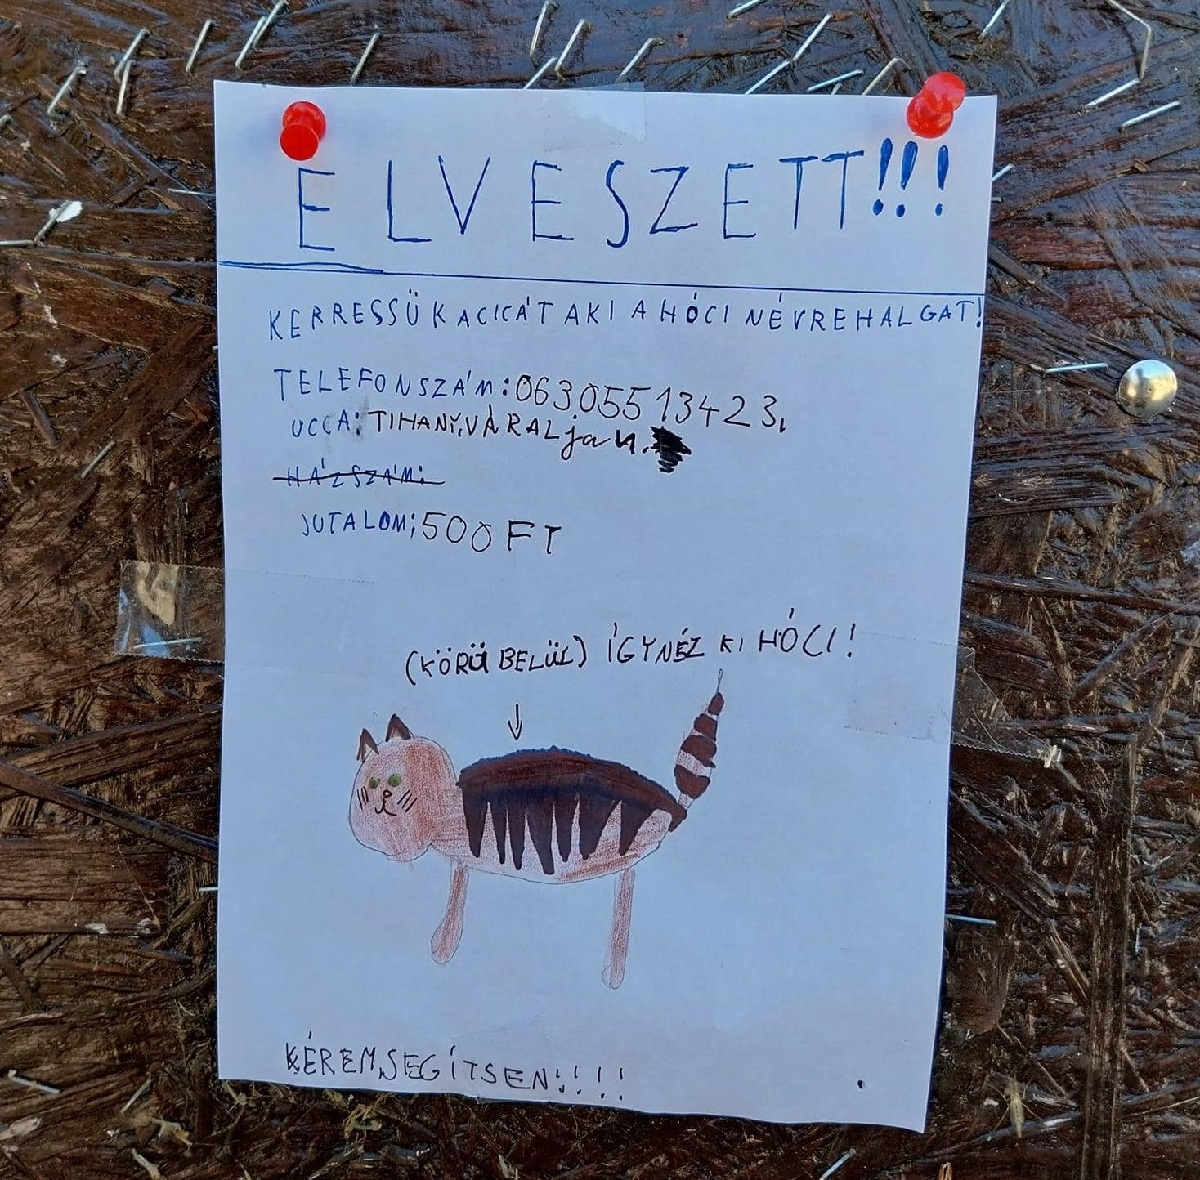 ELVESZETT!!!
KERRESSÜK A CICÁT AKI A HÓCI NÉVRE HALGAT!
TELEFONSZÁM: 06305513423.
UCCA: TIHANY, VÁRALjan.
HÁZSZÁM:
JUTALOM: 500 FT
(KÖRÜ BELÜL) ÍGY NÉZ KI HÓCI!
KÉREM, SEGÍTSEN!!!!